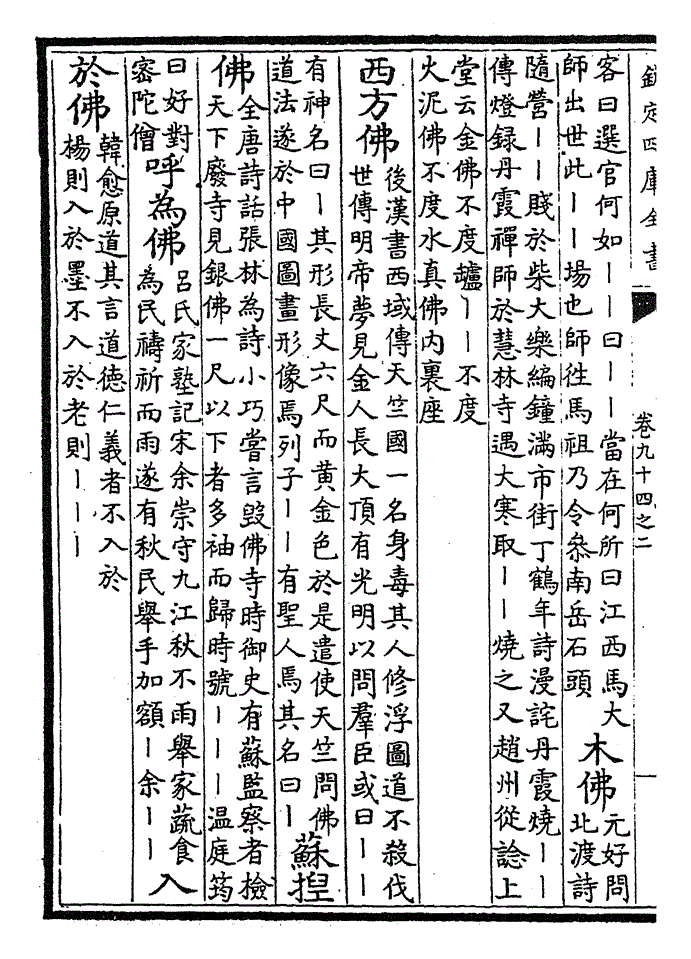 欽定四庫全書
卷九十四之二
客曰選官何如丨丨曰丨丨當在何所曰江西馬大
師出世此丨丨場也師徃馬祖乃令叅南岳石頭
木佛
元好問
北渡詩
隨營丨丨賤於柴大樂編鐘滿市街丁鶴年詩漫詫丹霞燒丨丨
傳燈録丹霞禪師於慧林寺遇大寒取丨丨燒之又趙州從諗上
堂云金佛不度罏丨丨不度
火泥佛不度水真佛内裏座
西方佛
後漢書西域傳天竺國一名身毒其人修浮圖道不殺伐
世傳明帝夢見金人長大頂有光明以問羣臣或曰丨丨
有神名曰丨其形長丈六尺而黄金色於是遣使天竺問佛
道法遂於中國圖畫形像焉列子丨丨有聖人焉其名曰丨
蘇揑
佛
全唐詩話張林為詩小巧嘗言毀佛寺時御史有蘇監察者檢
天下廢寺見銀佛一尺以下者多袖而歸時號丨丨丨温庭筠
曰好對
宻陀僧
呼為佛
呂氏家塾記宋余崇守九江秋不雨舉家蔬食
為民禱祈而雨遂有秋民舉手加額丨余丨丨
入
於佛
韓愈原道其言道德仁義者不入於
楊則入於墨不入於老則丨丨丨